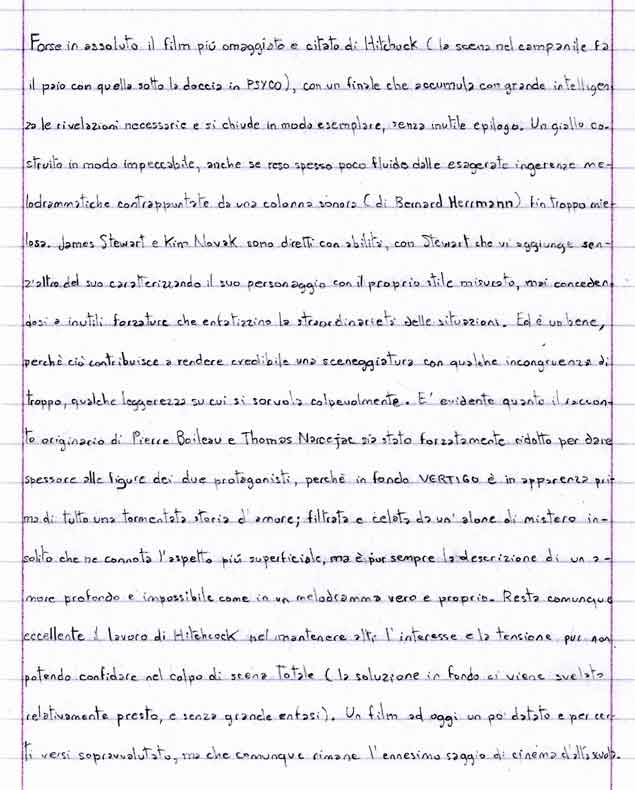 Forse in assoluto il film più omaggiato e citato di Hitchcock (la scena nel campanile fa
il paio con quella sotto la doccia in PSYCO), con un finale che accumula con grande intelligen
za le rivelazioni necessarie e si chiude in modo esemplare, senza inutile epilogo. Un giallo co-
struito in modo impeccabile, anche se reso spesso poco fluido dalle esagerate ingerenze me-
lodrammatiche contrappuntate da una colonna sonora (di Bernard Herrmann) fin troppo mie-
losa. James Stewart e Kim Novak sono diretti con abilità, con Stewart che vi aggiunge sen-
z'altro del suo caratterizzando il suo personaggio con il proprio stile misurato, mai conceden-
dosi a inutili forzature che enfatizzino la straordinarietà delle situazioni. Ed è un bene,
perchè ciò contribuisce a rendere credibile una sceneggiatura con qualche incongruenza di
troppo, qualche leggerezza su cui si sorvola colpevolmente. E' evidente quanto il raccon-
to originario di Pierre Boileau e Thomas Narcejac sia stato forzatamente ridotto per dare
spessore alle figure dei due protagonisti, perchè in fondo VERTIGO è in apparenza pri-
ma di tutto una tormentata storia d'amore; filtrata e celata da un'alone di mistero in-
solito che ne connota l'aspetto più superficiale, ma è pur sempre la descrizione di un a-
more profondo e impossibile come in un melodramma vero e proprio. Resta comunque
eccellente il lavoro di Hitchcock nel mantenere alti l'interesse e la tensione pur non
potendo confidare nel colpo di scena Totale (la soluzione in fondo ci viene svelata
relativamente presto, e senza grande enfasi). Un film ad oggi un po' datato e per cer-
ti versi sopravvalutato, ma che comunque rimane l'ennesimo saggio di cinema d'alta scuola.